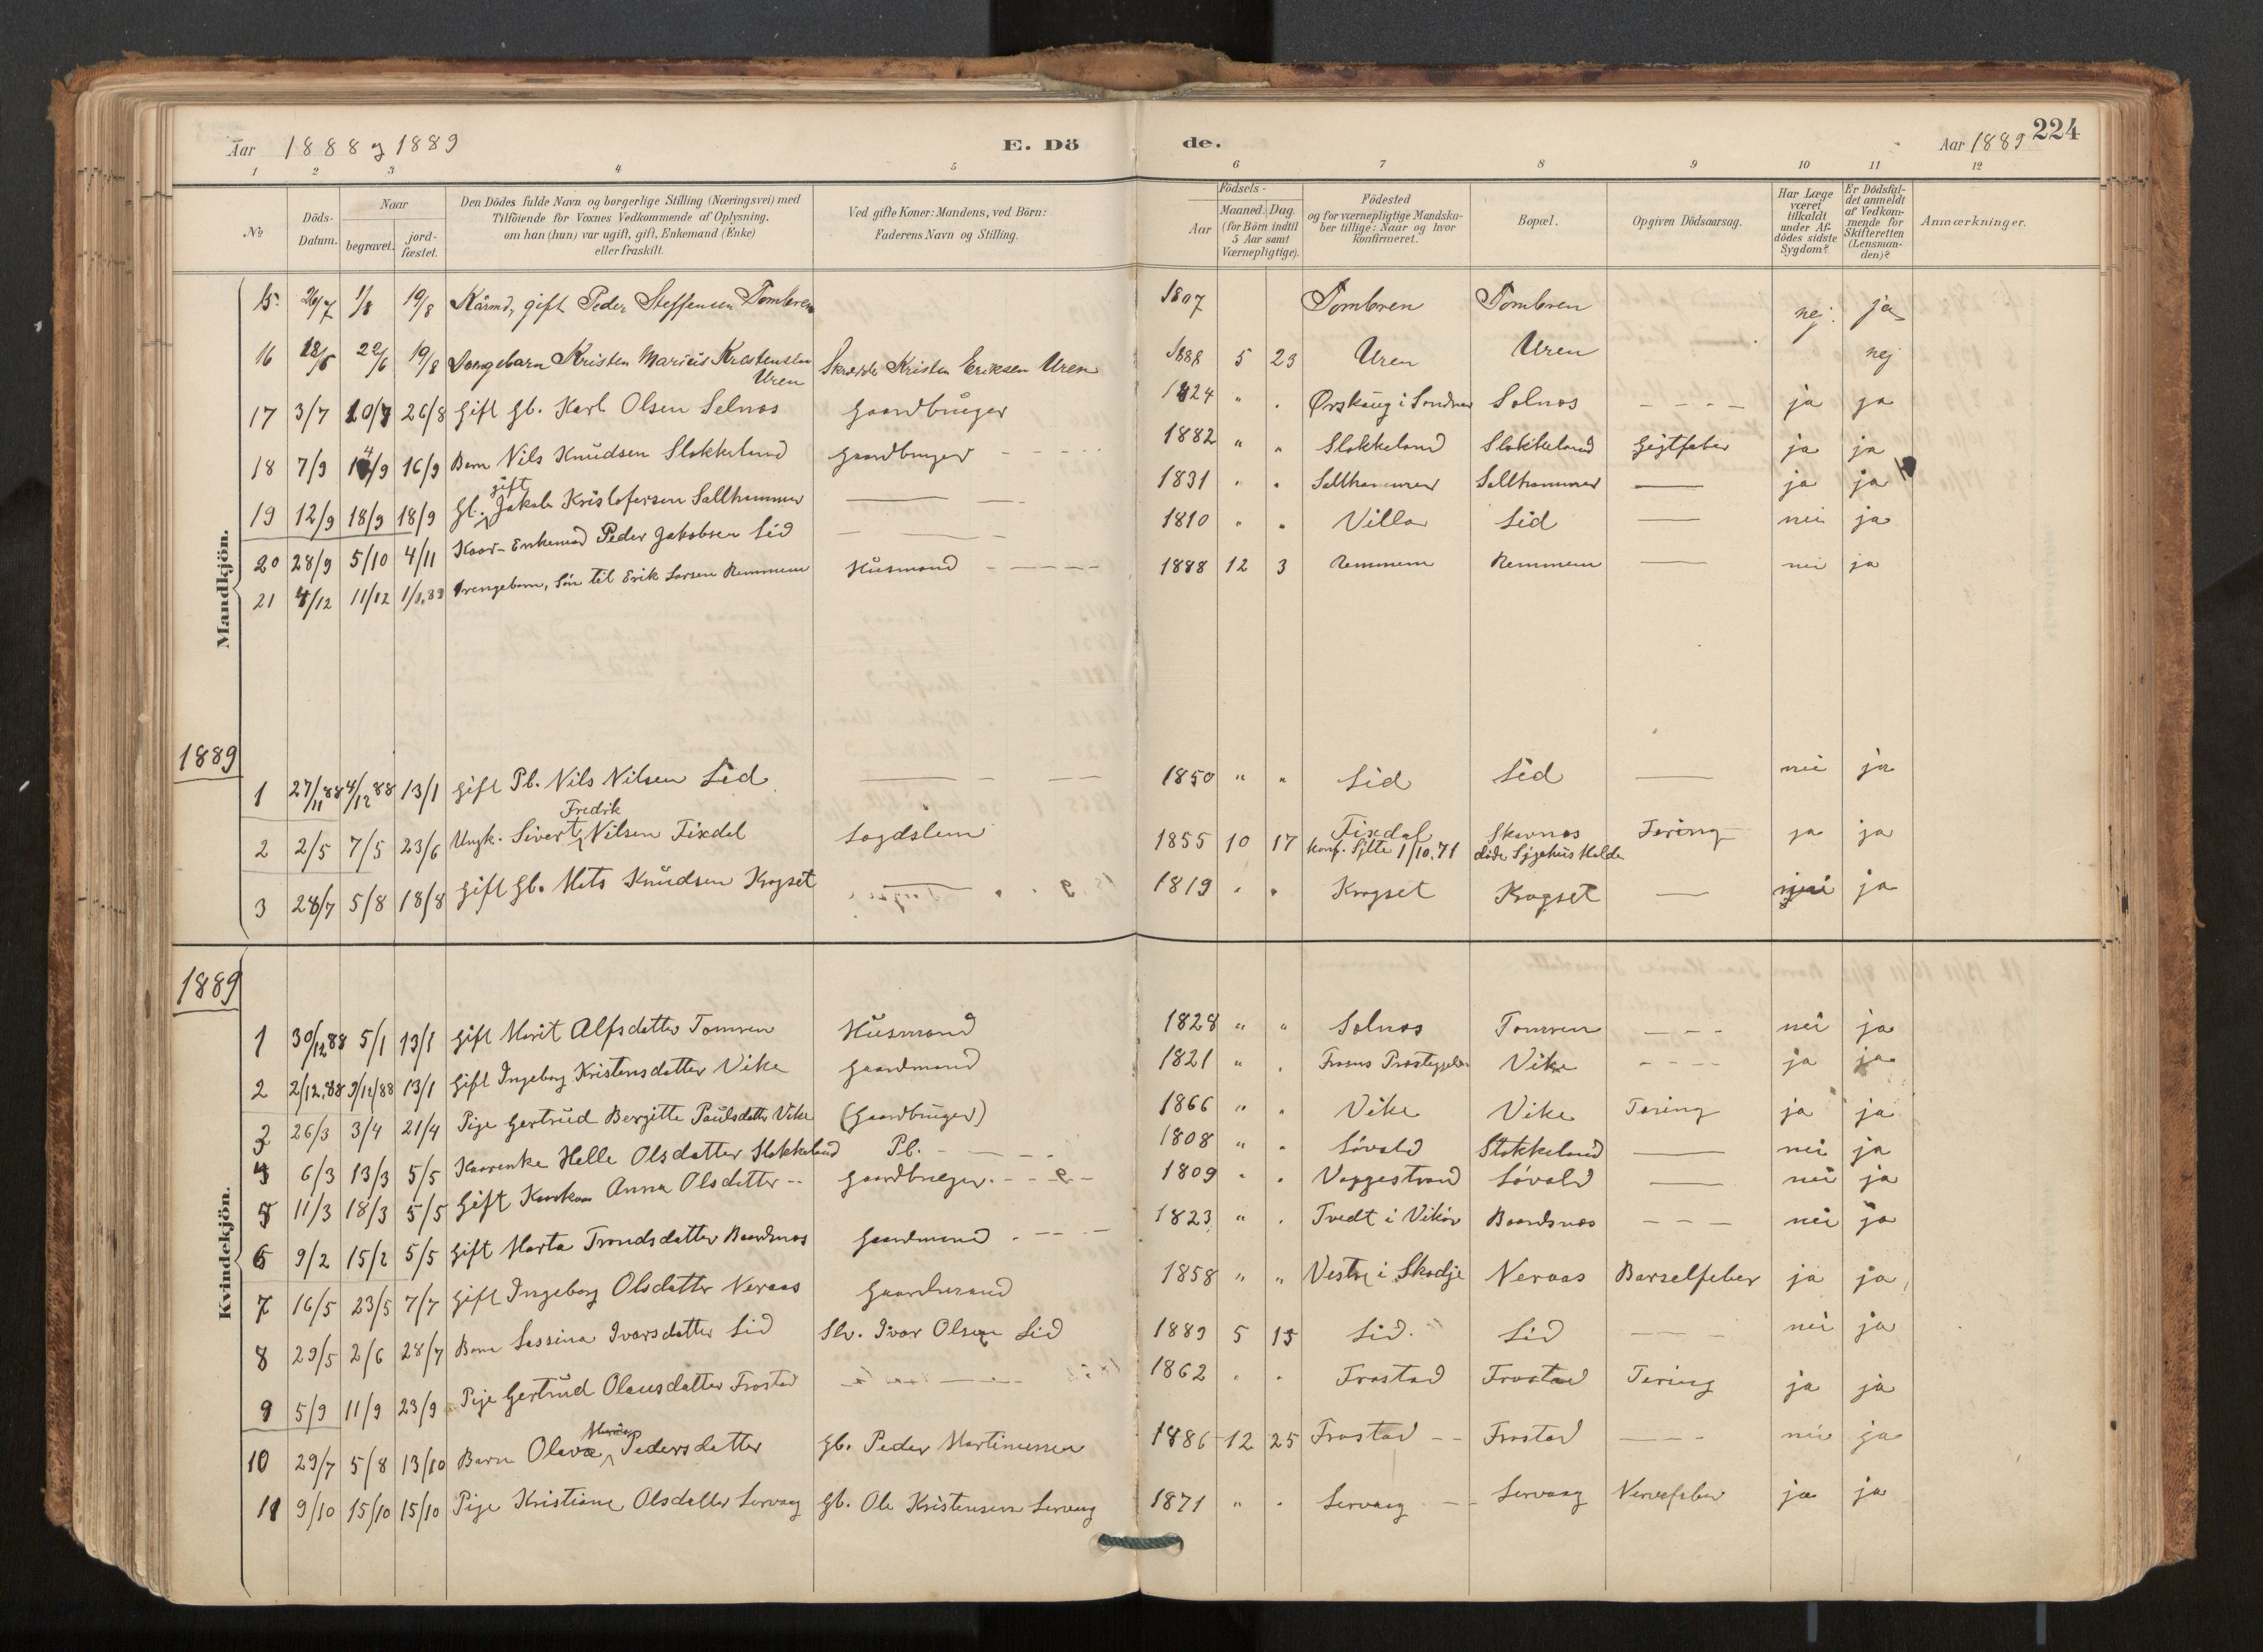 Aar 1888 og 1889 E. Dö de. Aar 1889 224
1 2 3 4 5 6 7 8 9 10 11 12
No
Döds-Datum.
Naar
begravet. jord-fæstet.
Den Dödes fulde Navn og borgerlige Stilling (Næringsvei) med
Tilföiende for Voxnes Vedkommende af Oplysning,
om han (hun) var ugift, gift, Enkemand (Enke)
eller fraskilt.
Ved gifte Koner: Mandens, ved Börn:
Faderens Navn og Stilling.
Födsels-
Aar Maaned. Dag.
(for Börn indtil
5 Aar samt
Værnepligtige).
Födested
og for værnepligtige Mandska-
ber tillige: Naar og hvor
konfirmeret.
Bopæl.
Opgiven Dödsaarsag.
Har Læge
været
tilkaldt
under Af-
dödes sidste
Sygdom?
Er Dödsfal-
det anmeldt
af Vedkom-
mende for
Skifteretten
(Lensman-
den)?
Anmærkninger.
Mandkjön.
15. 26/7 1/8 19/8 Kårmd, gift Peder Steffensen Tombren 1807 Tombren Tombren nej. ja
16 18/6 22/6 19/8 Drengebarn Kristen Marius Kristensen Uren Skrædder Kristen Eriksen Uren 1888 5 23 Uren Uren nej
17 3/7 10/7 26/8 Gift Gb. Karl Olsen Selnes Gaardbruger 1824 " . Ørskaug i Søndmør Solnos - - - - ja ja
18 7/9 14/9 16/9 Barn Nils Knudsen Slokkeland Gaardbruger - - - - 1882 " " Slokkeland Slokkeland Gigtfeber ja ja
19 12/9 18/9 18/9 Gb. gift Jakob Kristofersen Salthammer 1831 " " Salthammer Salthammer — ja ja
20 28/9 5/10 4/11 Kaar-Enkemand Peder Jakobsen Lid — 1810 " " Villa Lid — nei ja
21 4/12 11/12 1/1.89 Drengebarn, Søn til Erik Larsen Remmem Husmand - — 1888 12 3 Remmem Remmem — nei ja
1889
1 27/11 88 4/12 88 13/1 Gift Pb. Nils Nilsen Lid — 1850 " " Lid Lid — nei ja
2 2/5 7/5 23/6 Ungk. Sivert Fredrik Nilsen Fixdal Logdslem 1855 10 17 Fixdal konf. Sylte 1/10.71 Skavnos døde Sygehus Molde Tæring ja ja
3 28/7 5/8 18/8 Gift Gb. Mats Knudsen Krogset — 1819 " " Krogset Krogset — nei ja
Kvindekjön.
1889
1 30/12 88 5/1 13/1 Gift Marit Alfsdatter Tomren Husmand 1828 " " Solnos Tomren - - - nei ja
2 2/12.88 9/12/88 13/1 Gift Ingeborg Kristensdatter Vike Gaardmand 1821 " . Fræns Præstegjeld Vike - - - - ja ja
3 26/3 3/4 21/4 Pige Gertrud Bergitte Paulsdatter Vike (Gaardbruger) 1866 " " Vike Vike Tæring ja ja
4 6/3 13/3 5/5 Kaarenke Helle Olsdatter Slokkeland Pb. - — 1808 " . Løvold Slokkeland — nei ja
5 11/3 18/3 5/5 Gift Kaarkone Anna Olsdatter -- Gaardbruger. - - - 1809 " . Vaggestrand Løvold — nei ja
6 9/2 15/2 5/5 Gift Marta Trondsdatter Baardsnos Gaardmand - -- - 1823 " . Tvedt i Vikør Baardsnos - - - nei ja
7 16/5 23/5 7/7 Gift Ingeborg Olsdatter Neraas Gaardmand 1858 " " Vestre i Skodje Neraas Barselfeber ja ja
8 29/5 2/6 28/7 Barn Lassina Ivarsdatter Lid Slv. Ivar Olsen Lid 1889 5 15 Lid. Lid — nei ja
9 5/9 11/9 23/9 Pige Gertrud Olausdatter Frostad — 1862 " " Frostad Frostad Tæring ja ja
10 29/7 5/8 13/10 Barn Olava Pedersdatter Gb. Peder Martinussen 1886 12 25 Frostad -- Frostad — nei ja
11 9/10 15/10 15/10 Pige Kristiane Olsdatter Lervaag Gb. Ole Kristensen Lervaag 1871 " . Lervaag -- Lervaag Nervefeber ja ja